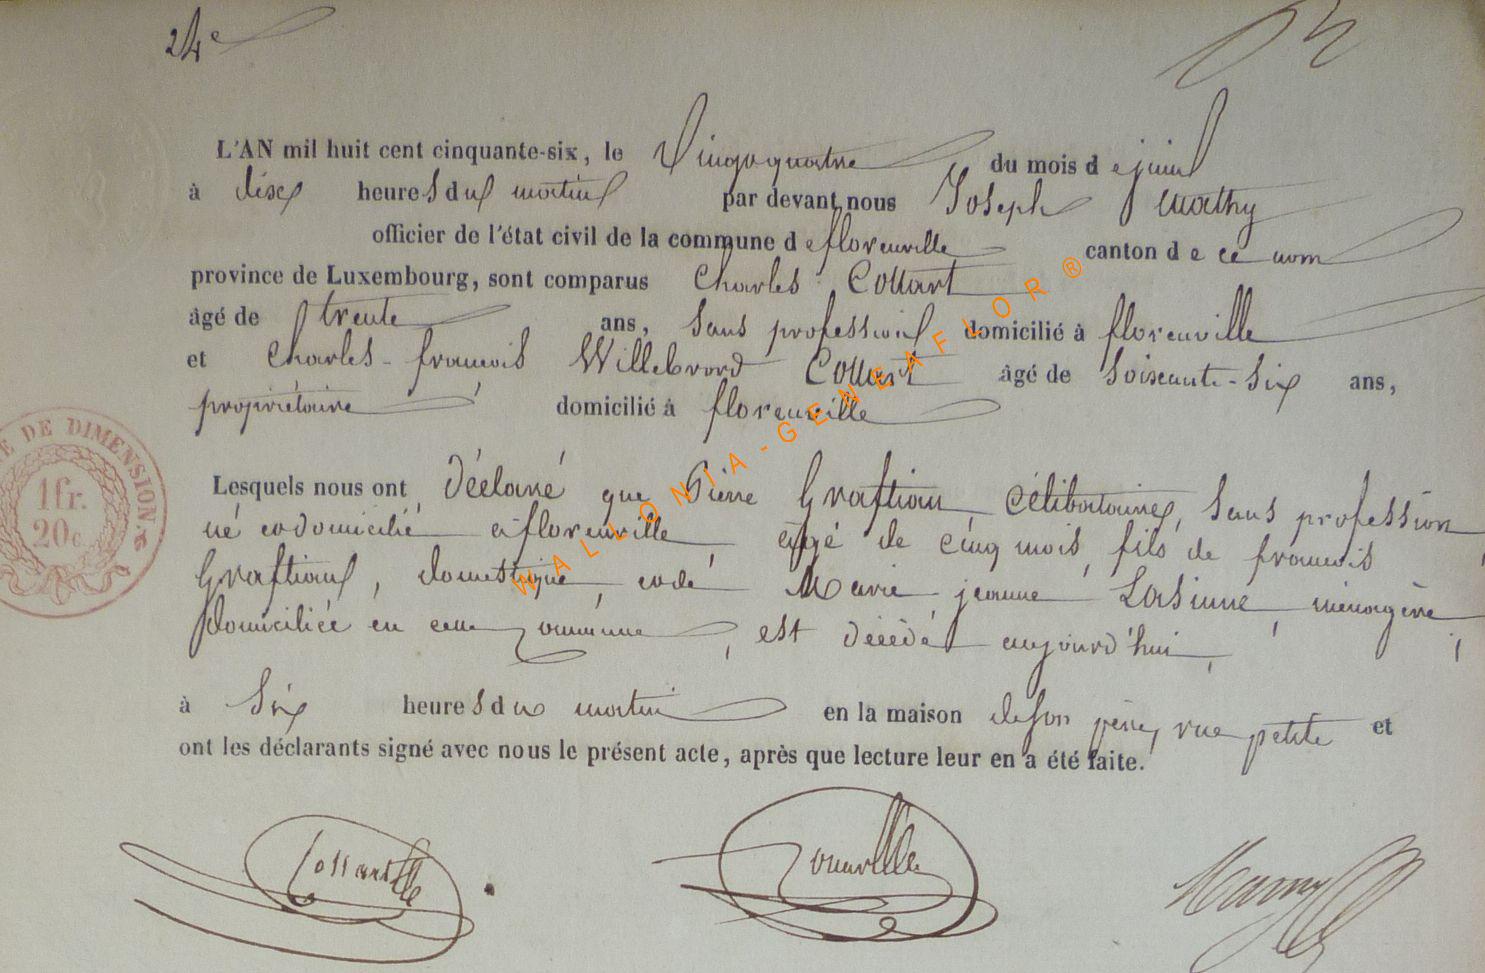 24e
L'AN mil huit cent cinquante-six, le Vingt quatre du mois de juin
à dix heures du matin par devant nous Joseph Mathy
officier de l'état civil de la commune de florenville canton de ce nom
province de Luxembourg, sont comparus Charles Collart
âgé de trente ans, Sans profession domicilié à florenville
et Charles-françois Willebrord Collart âgé de Soixante-Six ans,
propriétaire, domicilié à florenville
Lesquels nous ont déclaré que Pierre Graftiau célibataire, Sans profession
né et domicilié à florenville, âgé de cinq mois, fils de françois
Graftiau, domestique, et de Marie jeanne Lasinne, ménagère,
domiciliée en cette commune, est décédé aujourd'hui,
à Six heures du matin en la maison de son père, rue petite et
ont les déclarants signé avec nous le présent acte, après que lecture leur en a été faite.
E DE DIMENSION.
1 fr.
20c
WALLONIA-GENEAFLOR®